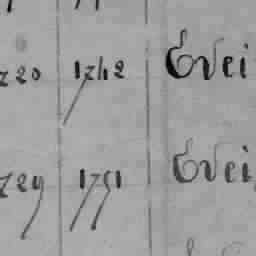 720 1742 Evei
729 1751 Evei